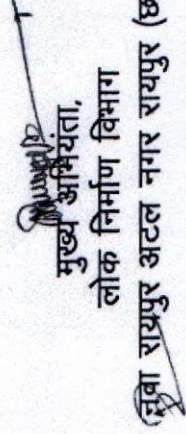 मुख्य अभियंता,
लोक निर्माण विभाग
नवा रायपुर अटल नगर रायपुर (छ